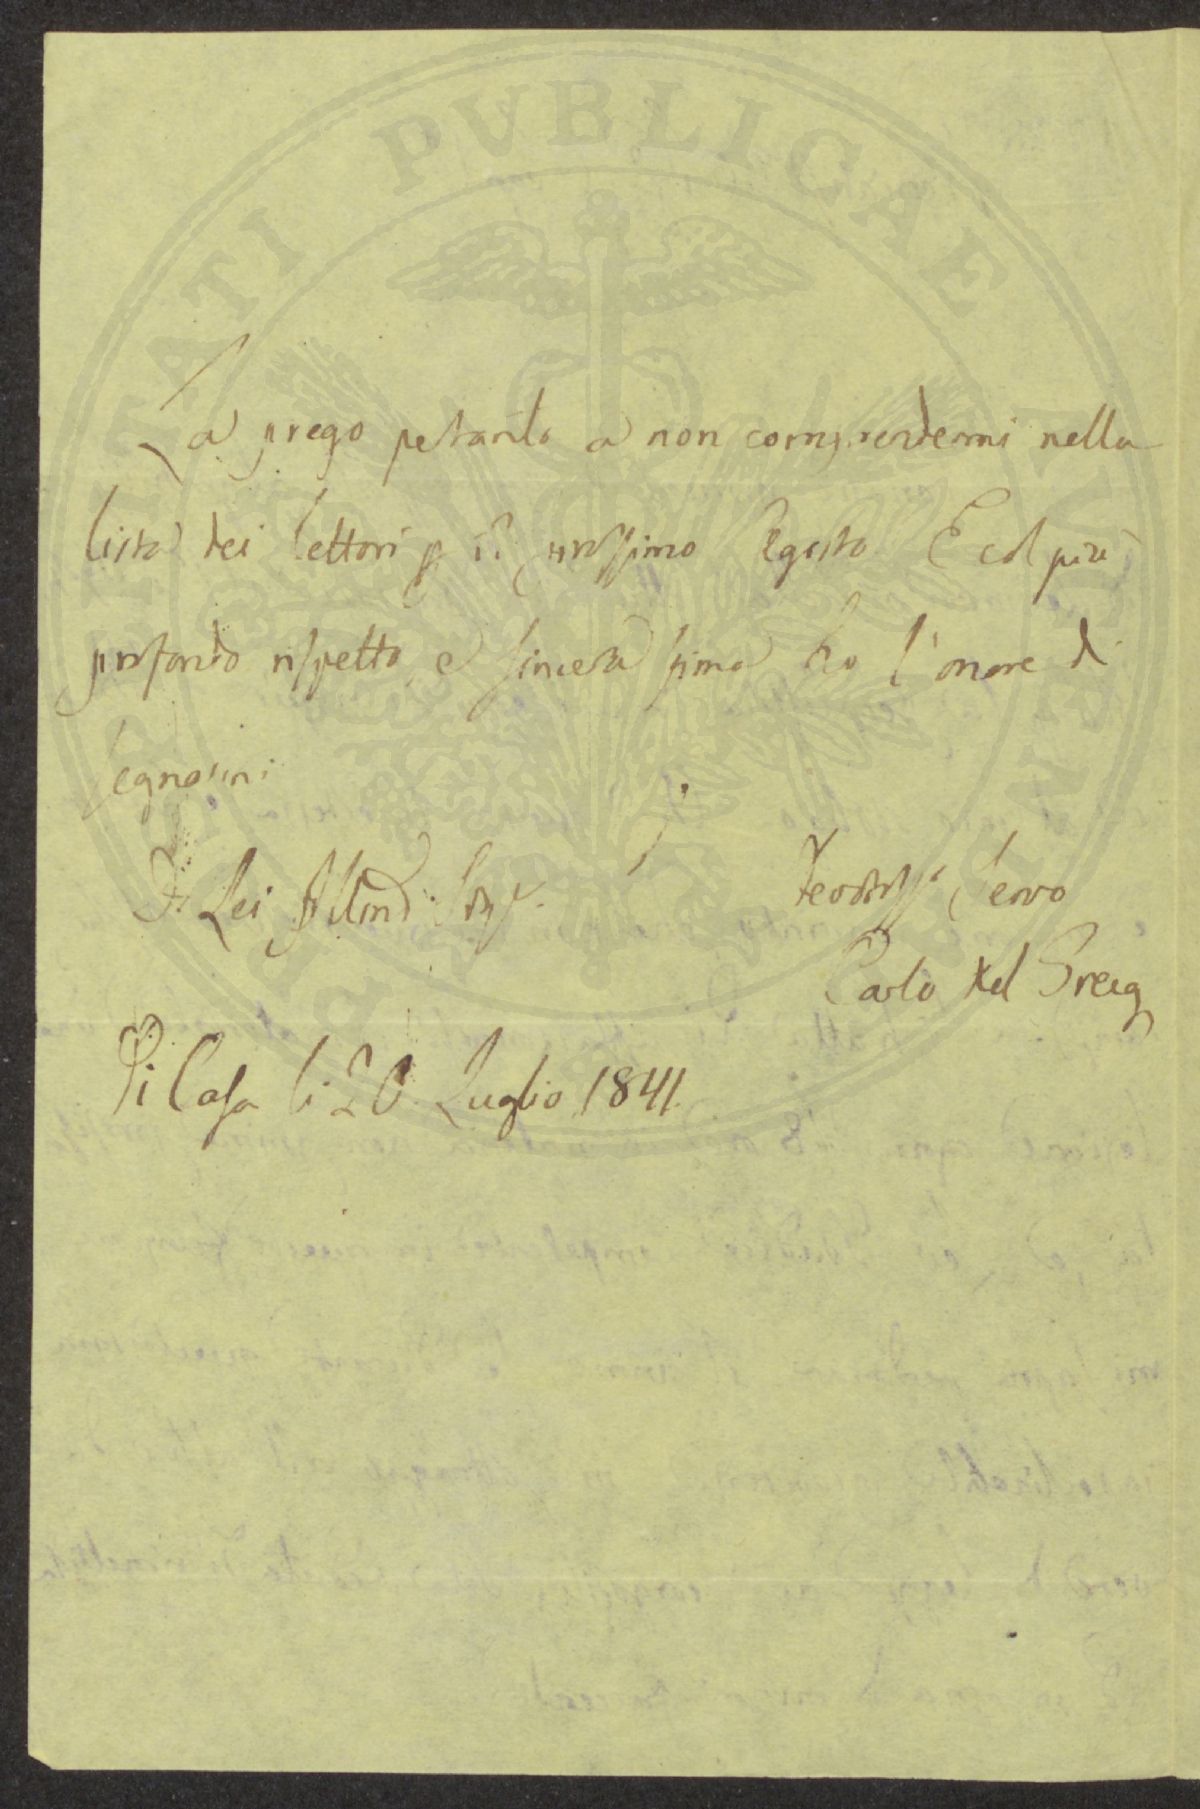 PROSPERITATI PUBLICAE AUGENDAE
La prego pertanto a non comprendermi nella
lista dei lettori p il prossimo Agosto E col più
profondo rispetto, e sincera stima ho l'onore di
segnarmi
Di Lei Illmo Sige
Devotisso Servo
Carlo Del Greco
Di Casa li 20 Luglio 1841